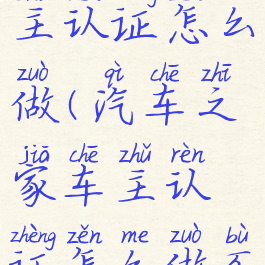 主认证怎么
zuò qì chē zhī
做(汽车之
jiā chē zhǔ rèn
家车主认
zhèng zěn me zuò bù
证怎么做不